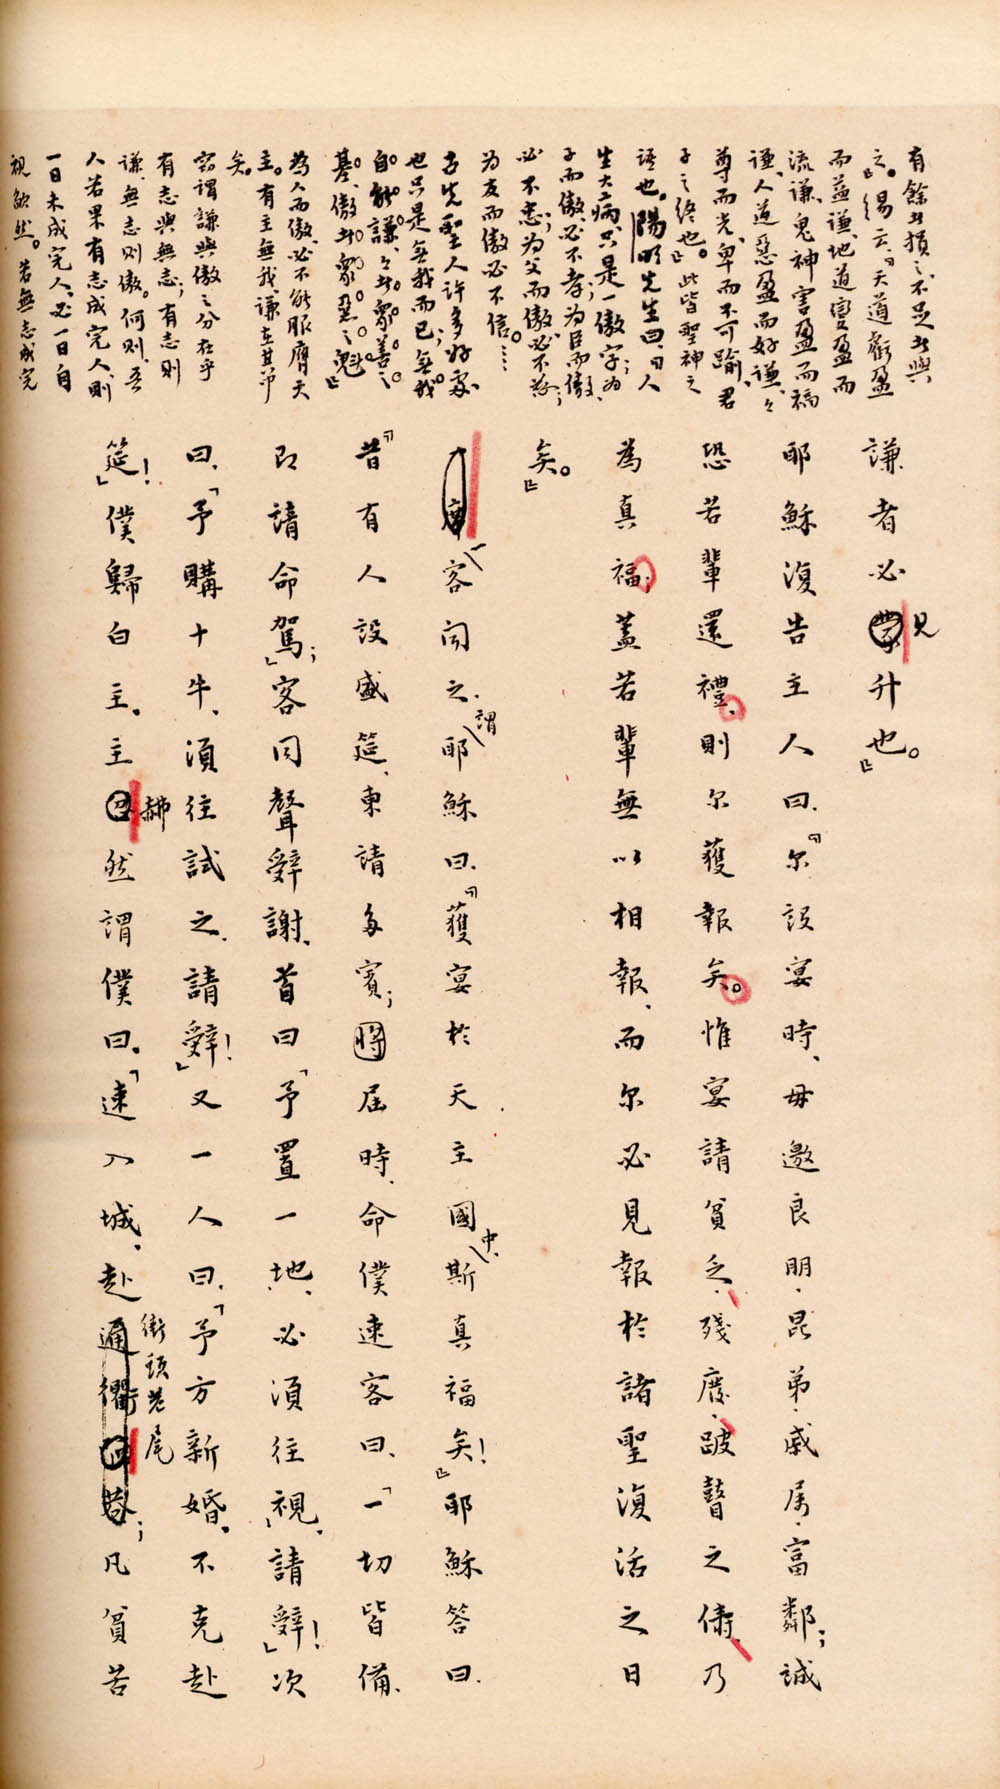 有餘者損之不足者與
之。』易云、『天道虧盈
而益謙、地道變盈而
流謙、鬼神害盈而福
謙、人道惡盈而好謙、謙
尊而光、卑而不可踰、君
子之終也。』此皆聖神之
語也。陽明先生曰、『人
生大病、只是一傲字；為
子而傲、必不孝；為臣而傲、
必不忠；為父而傲、必不慈；
為友而傲必不信。……
古先聖人許多好處
也只是無我而已；無我
自能謙、謙者眾善之
基。傲者眾惡之魁』
為人而傲、必不能服膺天
主。有主無我謙在其中
矣。
竊謂謙與傲之分在乎
有志與無志；有志則
謙、無志則傲。何則、吾
人若果有志成完人、則
一日未成完人、必一日自
視欿然。若無志成完
謙者必見升也。』
耶穌復告主人曰、『尔設宴時、毋邀良朋、昆弟、戚屬、富鄰；誠
恐若輩還禮、則尔獲報矣。惟宴請貧乏、殘廢、跛瞽之儔、乃
為真福；蓋若輩無以相報、而尔必見報於諸聖復活之日
矣。』
一客聞之、謂耶穌曰、『獲宴於天主國中、斯真福矣！』耶穌答曰、
『昔有人設盛筵、柬請多賓；屆時、命僕速客曰、「一切皆備、
即請命駕」；客同聲辭謝、首曰「予置一地、必須往視、請辭！」次
曰、「予購十牛、須往試之、請辭！」又一人曰、「予方新婚、不克赴
筵！」僕歸白主、主赫然謂僕曰、「速入城、赴街頭巷尾；凡貧苦